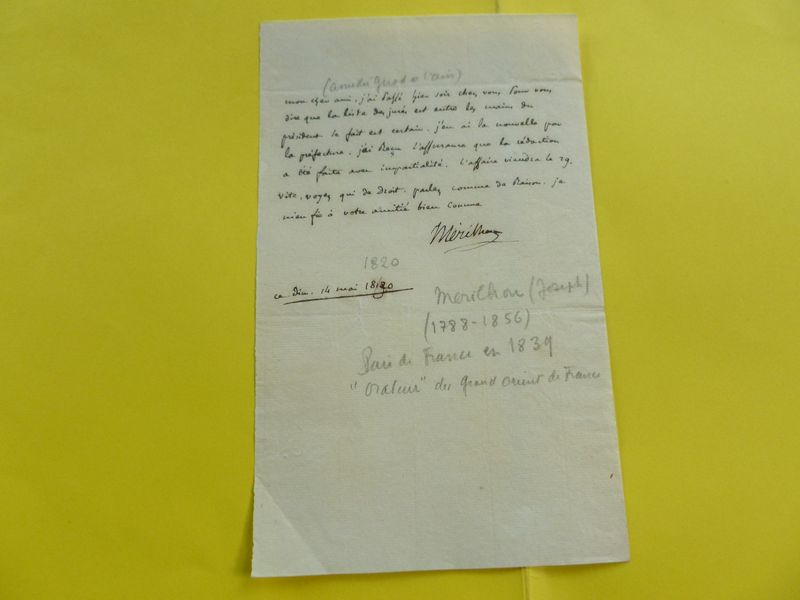 mon cher ami, j'ai passé hier soir chez vous pour vous
dire que la liste des jurés est entre les mains du
président le fait est certain. j'en ai la nouvelle par
la préfecture. j'ai reçu l'assurance que la rédaction
a été faite avec impartialité. l'affaire viendra le 29.
vite, voyez qui de droit. parlez comme de raison. je
m'en fie à votre amitié bien connue
Mérilhou
1820
ce dim. 14 mai 1820
Merilhou (Joseph)
(1788-1856)
Pair de France en 1839
"Orateur" du Grand Orient de France